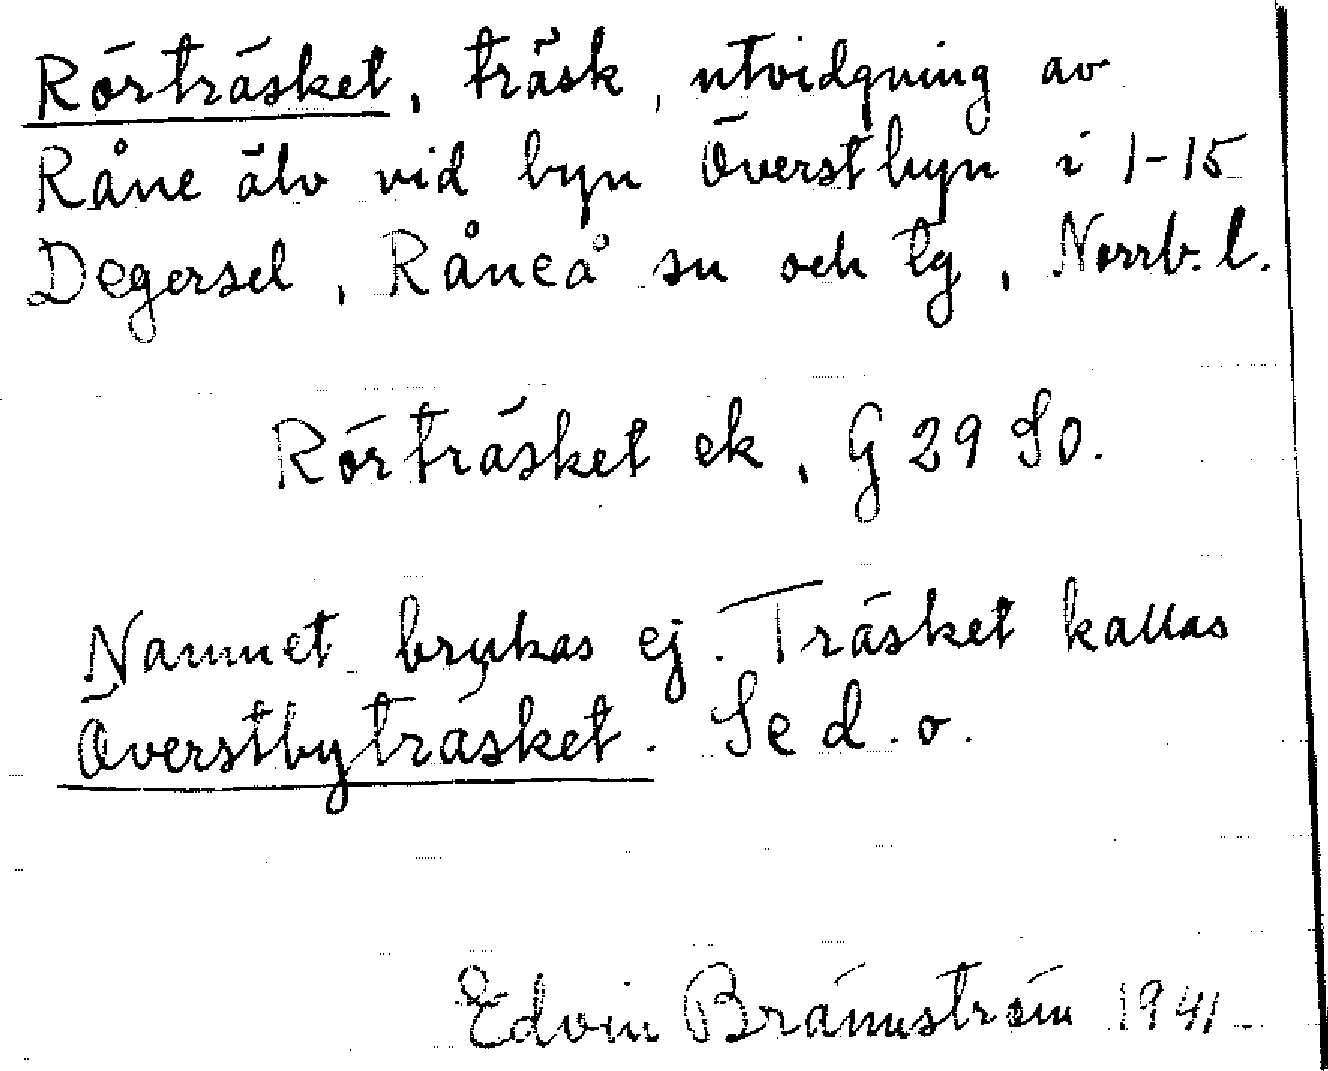 Rörträsket, träsk, utvidgning av
Råne älv vid byn Överstbyn i 1-15
Degersel, Råneå sn och tg, Norrb. l.
Rörträsket ek, G 29 SO.
Namnet brukas ej. Träsket kallas
Överstbyträsket. Se d. o.
Edvin Brännström 1941